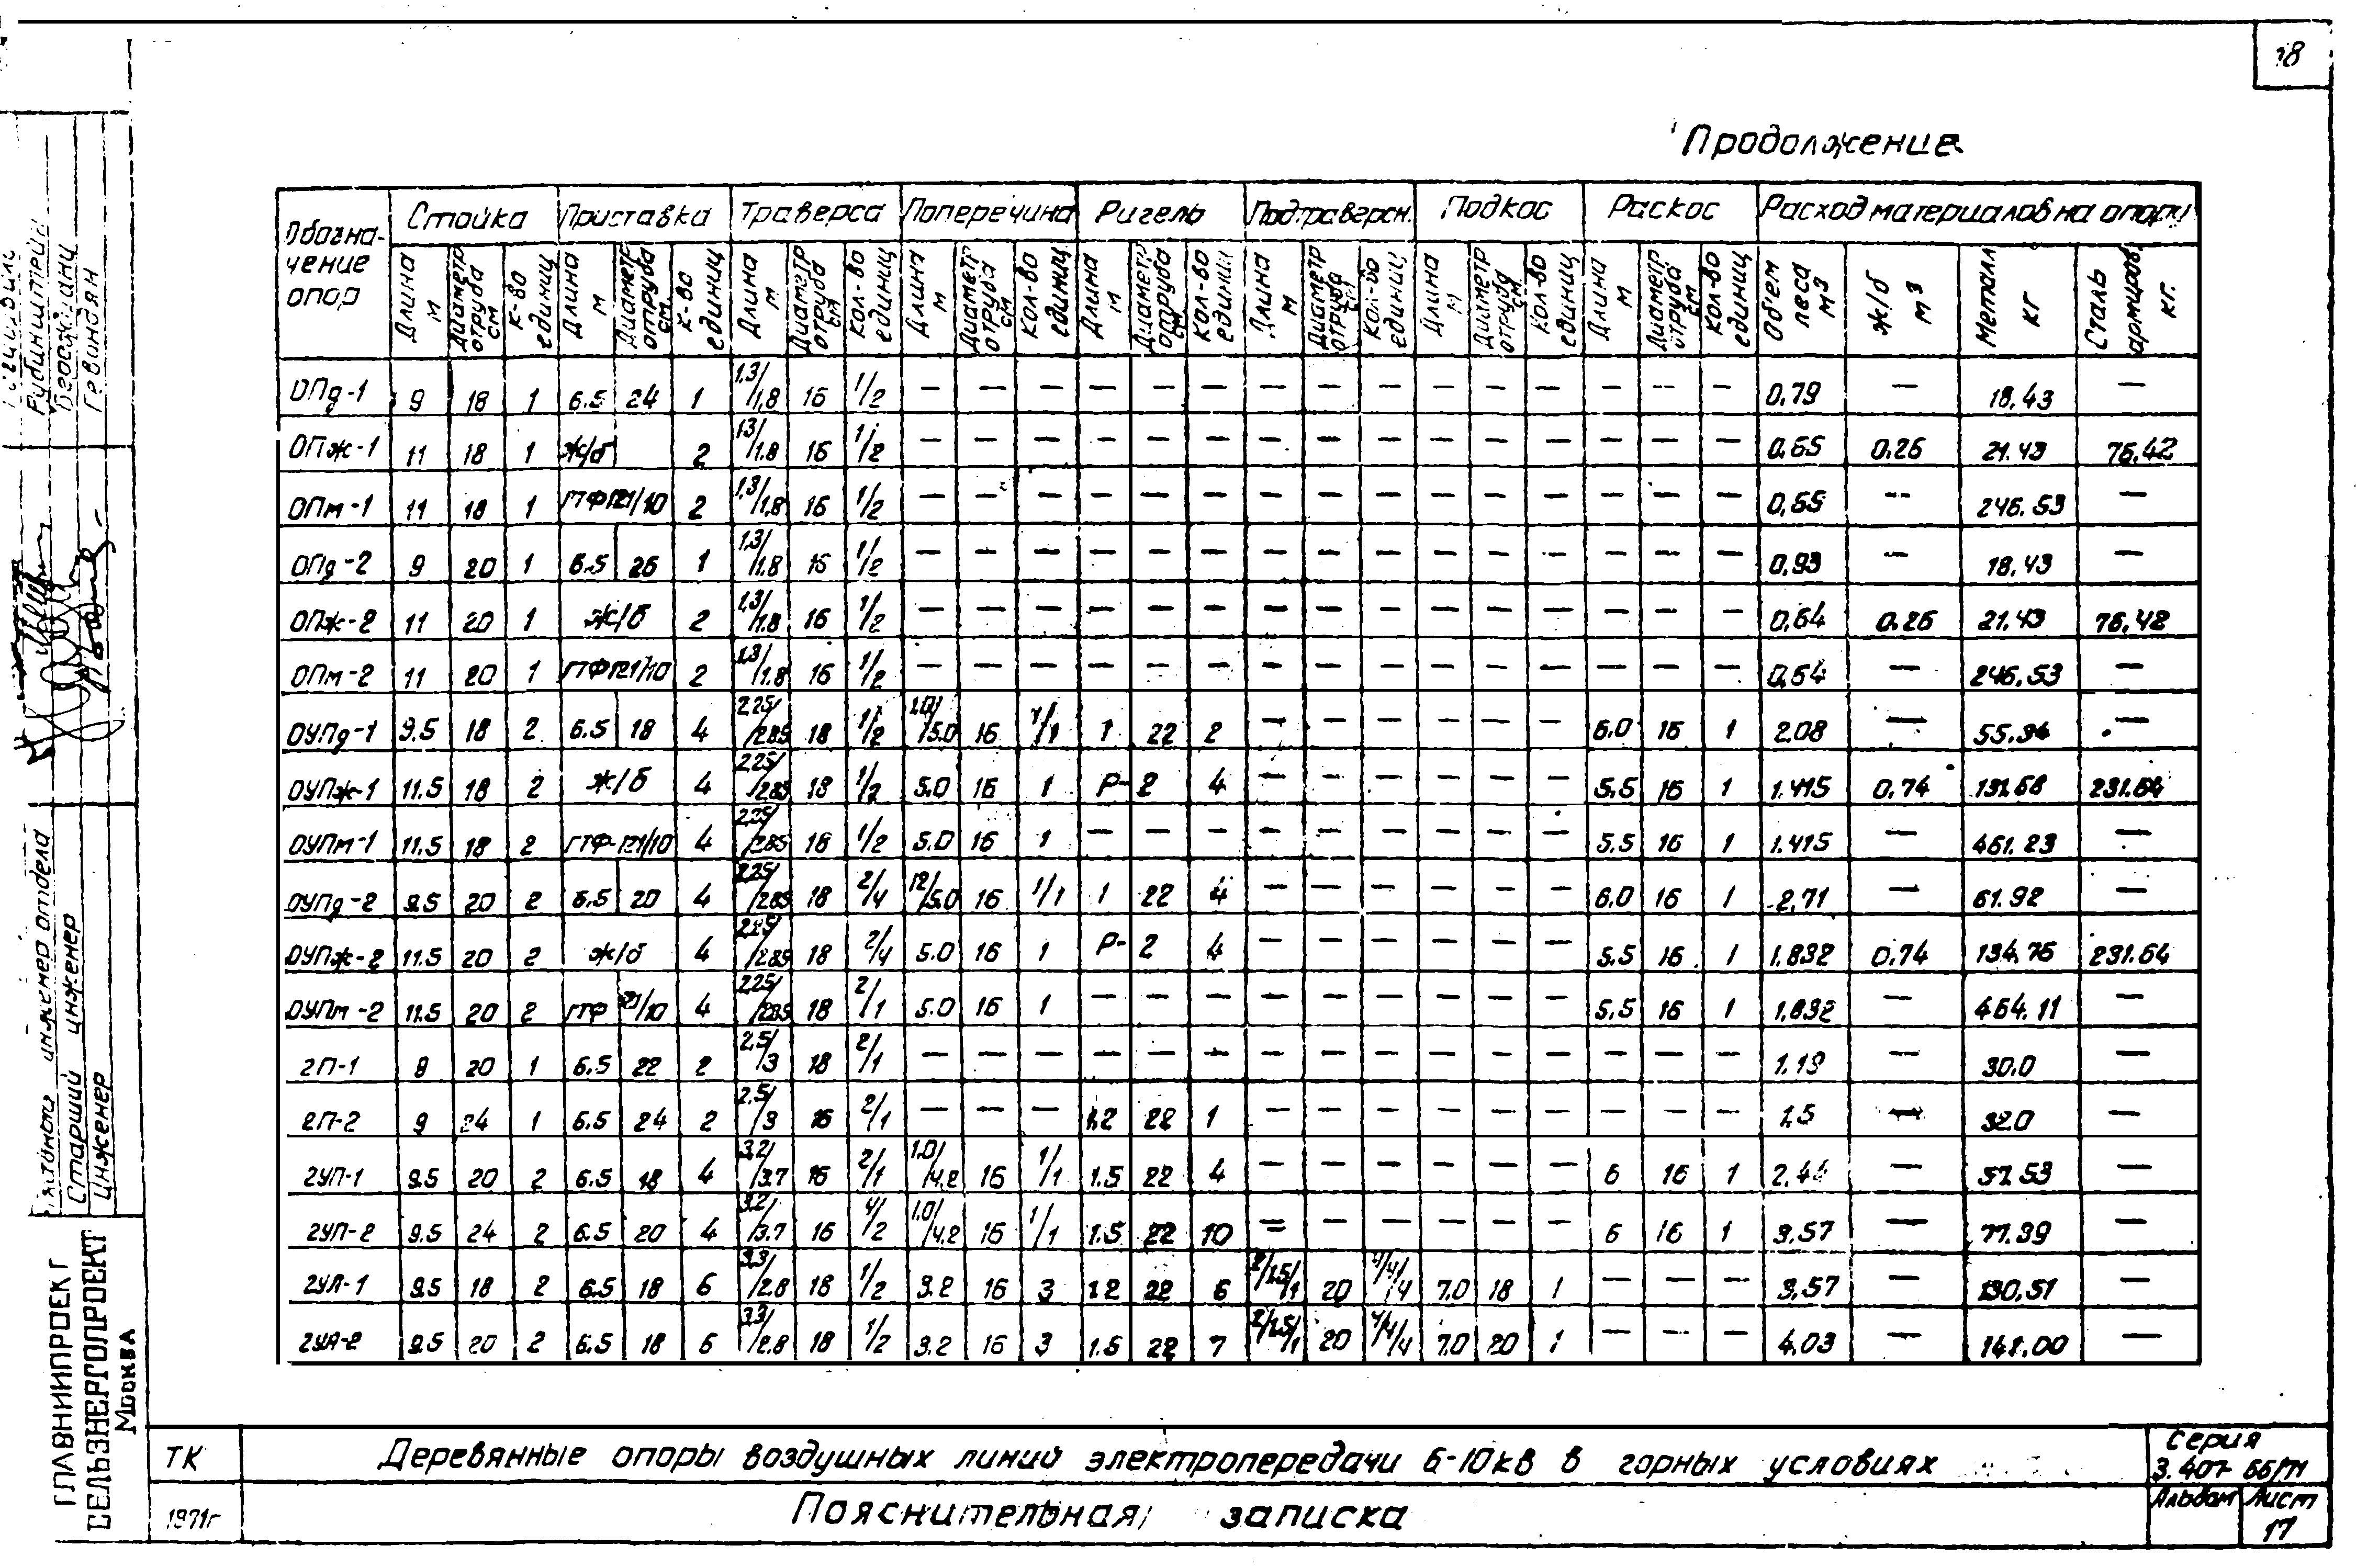 18
Продолжение
Обозначение опор | Стойка | Приставка | Траверса | Поперечина | Ригель | Подтраверсн. | Подкос | Раскос | Расход материалов на опору
Длина м | Диаметр отруба см | к-во единиц | Длина м | Диаметр отруба см | к-во единиц | Длина м | Диаметр отруба см | кол-во единиц | Длина м | Диаметр отруба см | кол-во единиц | Длина м | Диаметр отруба см | кол-во единиц | Длина м | Диаметр отруба см | кол-во единиц | Длина м | Диаметр отруба см | кол-во единиц | Длина м | Диаметр отруба см | кол-во единиц | Объем леса м3 | ж/б м3 | Металл кг | Сталь армиров. кг.
ОПд-1 | 9 | 18 | 1 | 6.5 | 24 | 1 | 1,3/1,8 | 16 | 1/2 | — | — | — | — | — | — | — | — | — | — | — | — | — | — | — | 0,79 | — | 18.43 | —
ОПж-1 | 11 | 18 | 1 | ж/б | 2 | 1.3/1.8 | 16 | 1/2 | — | — | — | — | — | — | — | — | — | — | — | — | — | — | — | 0,65 | 0.26 | 21.43 | 76.42
ОПм-1 | 11 | 18 | 1 | ПТФ 121/10 | 2 | 1,3/1,8 | 16 | 1/2 | — | — | — | — | — | — | — | — | — | — | — | — | — | — | — | 0,65 | — | 246.53 | —
ОПд-2 | 9 | 20 | 1 | 6.5 | 26 | 1 | 1,3/1.8 | 16 | 1/2 | — | — | — | — | — | — | — | — | — | — | — | — | — | — | — | 0,93 | — | 18.43 | —
ОПж-2 | 11 | 20 | 1 | ж/б | 2 | 1,3/1.8 | 16 | 1/2 | — | — | — | — | — | — | — | — | — | — | — | — | — | — | — | 0,64 | 0.26 | 21.43 | 76,42
ОПм-2 | 11 | 20 | 1 | ПТФ 121/10 | 2 | 1,3/1.8 | 16 | 1/2 | — | — | — | — | — | — | — | — | — | — | — | — | — | — | — | 0,64 | — | 246.53 | —
ОУПд-1 | 9.5 | 18 | 2 | 6.5 | 18 | 4 | 2.25/2.85 | 18 | 1/2 | 1.0/5.0 | 16 | 1/1 | 1 | 22 | 2 | — | — | — | — | — | — | 6.0 | 16 | 1 | 2.08 | — | 55.94
ОУПж-1 | 11.5 | 18 | 2 | ж/б | 4 | 2.25/2.85 | 18 | 1/2 | 5.0 | 16 | 1 | Р-2 | 4 | — | — | — | — | — | — | 5.5 | 16 | 1 | 1.415 | 0.74 | 131.68 | 231.64
ОУПм-1 | 11.5 | 18 | 2 | ПТФ-121/10 | 4 | 2.25/2.85 | 18 | 1/2 | 5.0 | 16 | 1 | — | — | — | — | — | — | — | — | — | 5.5 | 16 | 1 | 1.415 | — | 461.23 | —
ОУПд-2 | 9.5 | 20 | 2 | 6.5 | 20 | 4 | 2.25/2.85 | 18 | 2/4 | 1.2/5.0 | 16 | 1/1 | 1 | 22 | 4 | — | — | — | — | — | — | 6.0 | 16 | 1 | 2.71 | — | 61.92 | —
ОУПж-2 | 11.5 | 20 | 2 | ж/б | 4 | 2.25/2.85 | 18 | 2/4 | 5.0 | 16 | 1 | Р-2 | 4 | — | — | — | — | — | — | 5.5 | 16 | 1 | 1.832 | 0.74 | 134.76 | 231.64
ОУПм-2 | 11.5 | 20 | 2 | ПТФ 121/10 | 4 | 2.25/2.85 | 18 | 2/1 | 5.0 | 16 | 1 | — | — | — | — | — | — | — | — | — | 5.5 | 16 | 1 | 1.832 | — | 464.11 | —
2П-1 | 9 | 20 | 1 | 6.5 | 22 | 2 | 2,5/3 | 18 | 2/1 | — | — | — | — | — | — | — | — | — | — | — | — | — | — | — | 1.19 | — | 30.0 | —
2П-2 | 9 | 24 | 1 | 6.5 | 24 | 2 | 2.5/3 | 16 | 2/1 | — | — | — | 1.2 | 22 | 1 | — | — | — | — | — | — | — | — | — | 1,5 | — | 32.0 | —
2УП-1 | 9.5 | 20 | 2 | 6.5 | 18 | 4 | 3.2/3.7 | 16 | 2/1 | 1.0/4.2 | 16 | 1/1 | 1.5 | 22 | 4 | — | — | — | — | — | — | 6 | 16 | 1 | 2.44 | — | 57.53 | —
2УП-2 | 9.5 | 24 | 2 | 6.5 | 20 | 4 | 3.2/3.7 | 16 | 4/2 | 1.0/4.2 | 16 | 1/1 | 1.5 | 22 | 10 | — | — | — | — | — | — | 6 | 16 | 1 | 3.57 | — | 77.39 | —
2УА-1 | 9.5 | 18 | 2 | 6.5 | 18 | 6 | 3.3/2.8 | 18 | 1/2 | 3.2 | 16 | 3 | 1.2 | 22 | 6 | 2/1.5/1 | 20 | 4/4/4 | 7.0 | 18 | 1 | — | — | — | 3.57 | — | 130.51 | —
2УА-2 | 9.5 | 20 | 2 | 6.5 | 18 | 6 | 3.3/2.8 | 18 | 1/2 | 3.2 | 16 | 3 | 1.5 | 22 | 7 | 2/1.5/1 | 20 | 4/4/4 | 7.0 | 20 | 1 | — | — | — | 4.03 | — | 141.00 | —
Рубинштейн
Гвиндян
инженер отдела
Старший инженер
Инженер
ГЛАВНИИПРОЕКТ
СЕЛЬЭНЕРГОПРОЕКТ
Москва
ТК
1971г
Деревянные опоры воздушных линий электропередачи 6-10кв в горных условиях
Пояснительная записка
Серия
3.407-66/71
Альбом
Лист
17